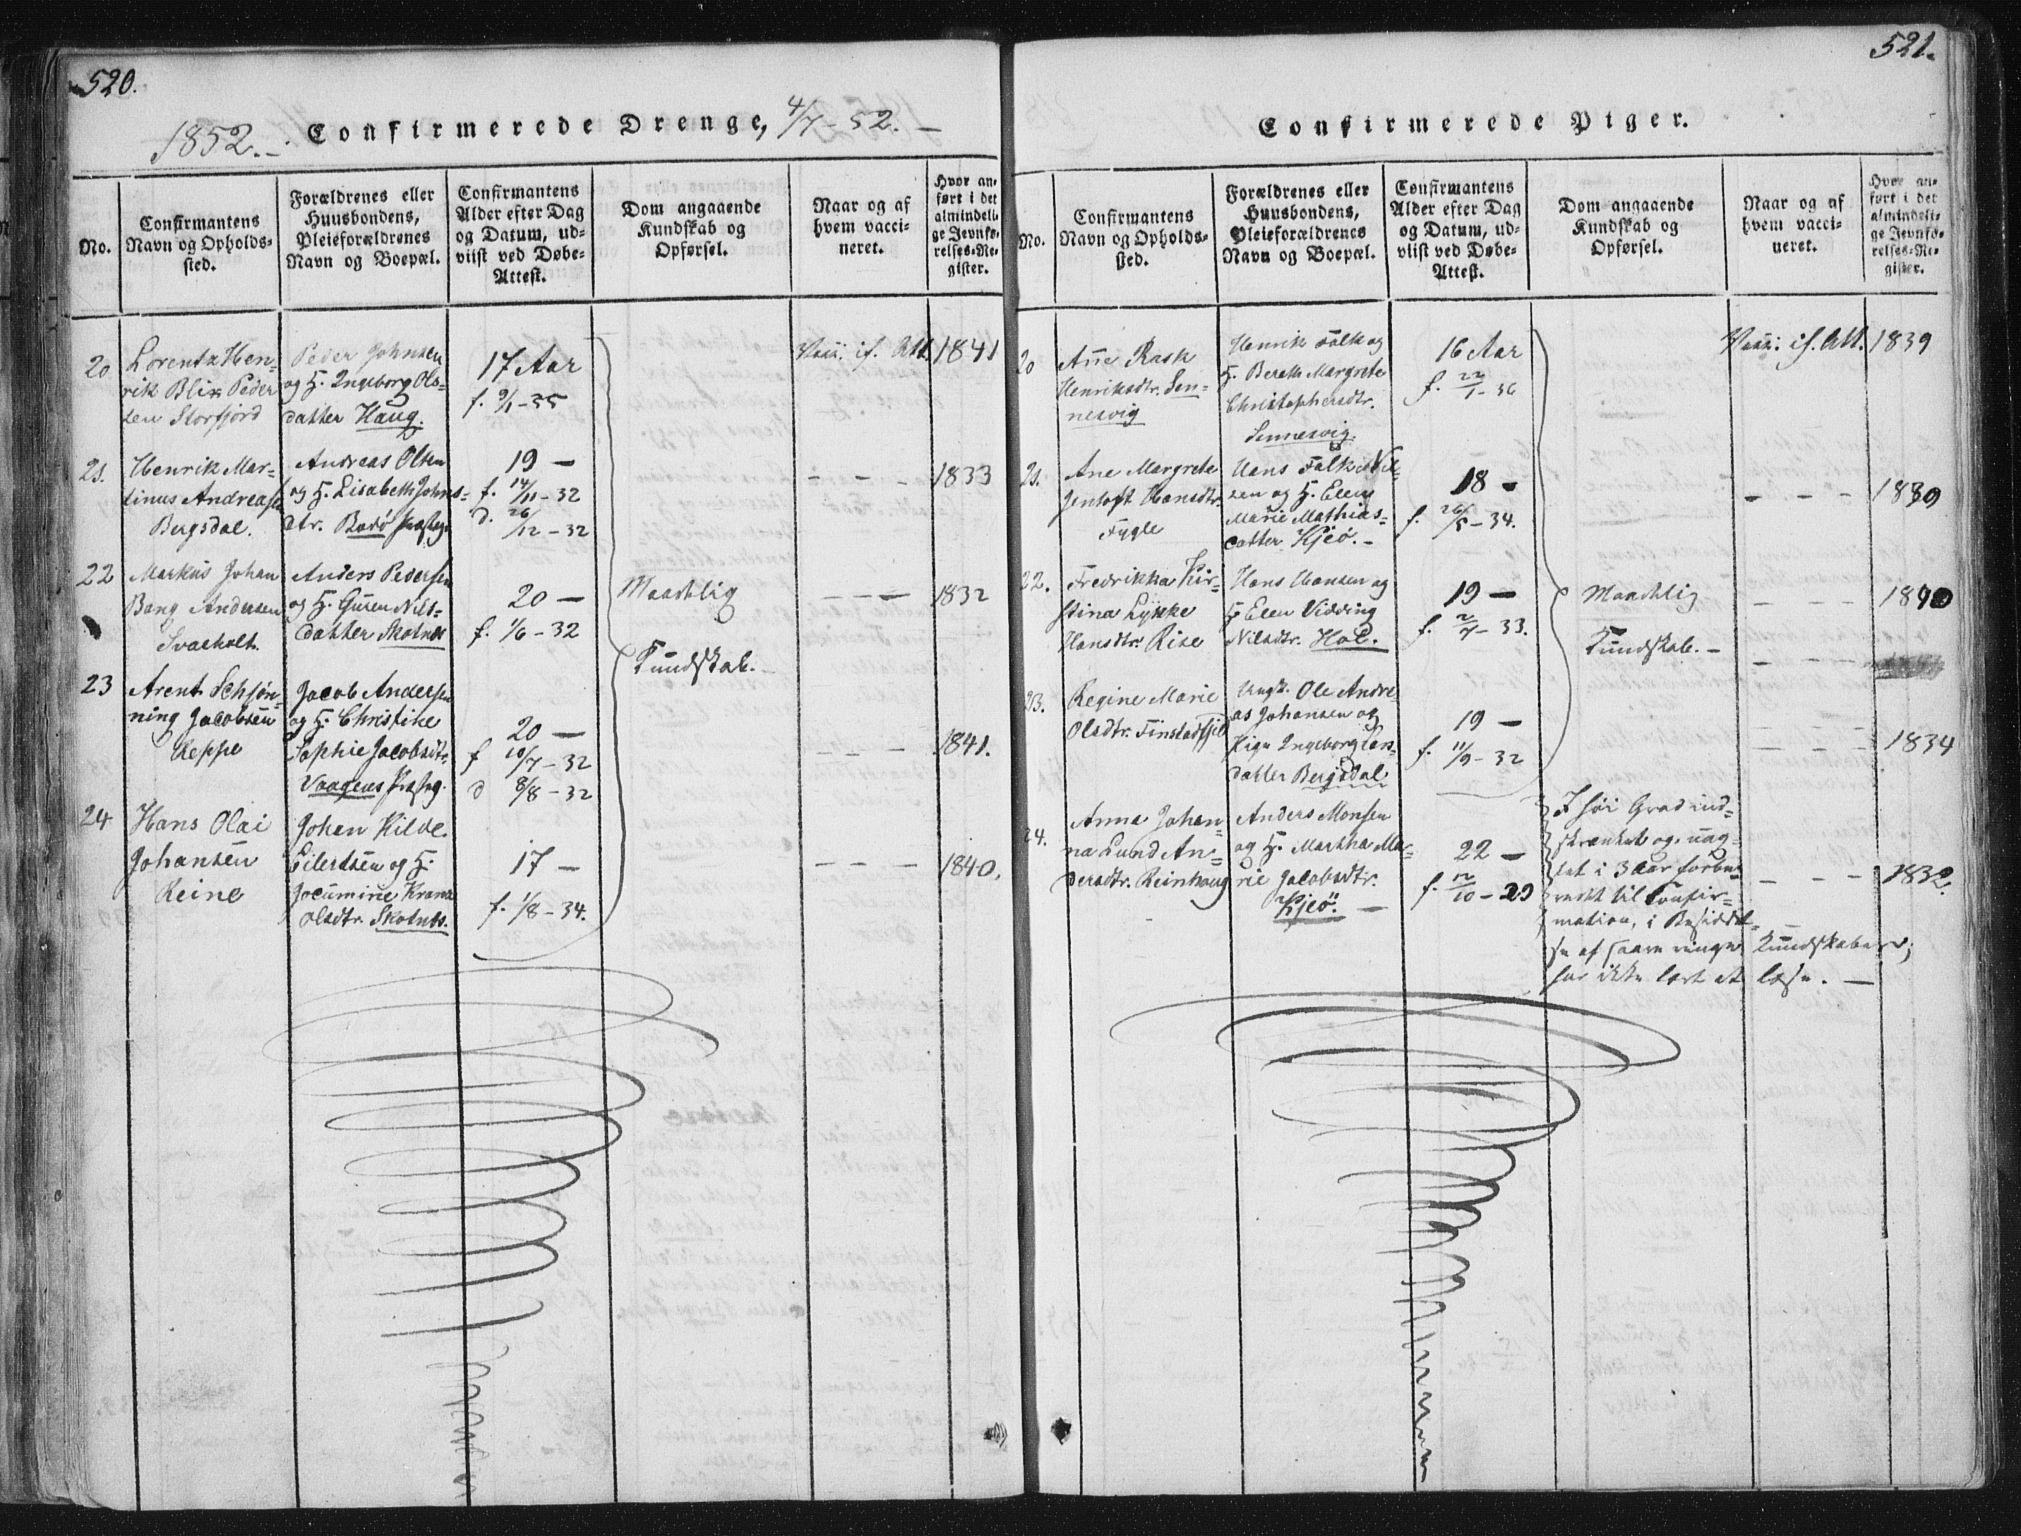 520.
1852. Confirmerede Drenge, 4/7-52.
No.
Confirmantens Navn og Opholdssted.
Forældrenes eller Huusbondens, Pleieforældrenes Navn og Boepæl.
Confirmantens Alder efter Dag og Datum, udviist ved Døbe-Attest.
Dom angaaende Kundskab og Opførsel.
Naar og af hvem vaccineret.
Hvor anført i det almindelige Jevnførelses-Register.
20
Lorentz Hen-
rik Blix Peder
sen Storfjord
Peder Johnsen
og H. Ingeborg Ols-
datter Haug.
17 Aar
f. 9/1-35
Vacc. if. Att.
1841
21.
Henrik Mar-
tinus Andreasen
Bergsdal.
Andreas Olsen
og H. Lisabeth Johns-
dtr. Bodø Præsteg.
19 —
f. 14/11-32
d. 26/12-32
— — —
1833
22
Markus Johan
Bang Andersen
Svaeholt.
Anders Pedersen
og H. Guren Nils-
datter Skotnes
20 —
f. 1/6-32
Maadelig
Kundskab.
— — —
1832
23
Arent Schjøn-
ning Jacobsen
Reppe
Jacob Andersen
og H. Christine
Sophie Jacobsdtr.
Vaagens Præsteg.
20 —
f 10/7-32
d 8/8-32
— — —
1841.
24
Hans Olai
Johansen
Reine
Johan Kilde
Eilertsen og H.
Jocumine Krane
Olsdtr. Skotnes.
17 —
f. 1/8-34.
— — —
1840.
521.
Confirmerede Piger.
No.
Confirmantens Navn og Opholdssted.
Forældrenes eller Huusbondens, Pleieforældrenes Navn og Boepæl.
Confirmantens Alder efter Dag og Datum, udviist ved Døbe-Attest.
Dom angaaende Kundskab og Opførsel.
Naar og af hvem vaccineret.
Hvor anført i det almindelige Jevnførelses-Register.
20
Ane Rask
Henriksdtr. Sen-
nesvig
Henrik Falk og
H. Berethe Margrete
Christophersdtr.
Sennesvig.
16 Aar
f. 22/1-36
Vacc. if. Att.
1839
21.
Ane Margrete
Jentoft Hansdtr.
Fygle
Hans Falk Nil-
sen og H. Elen
Marie Mathias-
datter Kjeø. —
18 —
f. 26/5-34.
— — —
1839
22.
Fredrikka Kir-
stina Lykke
Hansdtr. Rise
Hans Hansen og
H. Elen Vidding
Nilsdtr. Hol.
19 —
f. 2/7-33.
Maadelig
Kundskab. —
— — —
1840
23.
Regine Marie
Olsdtr. Finstadfjel
Ungk. Ole Andre-
as Johansen og
Pige Ingeborg Lars-
datter Bergsdal
19 —
f. 11/9-32
— — —
1834
24.
Anna Johan-
na Lund An-
dersdtr. Reinhaug
Anders Monsen
og H. Martha Ma-
rie Jacobsdtr.
Kjeø. —
22 —
f. 12/10-29
I høi Grad ind-
skrænket og uag-
tet i 3 Aar forbe-
redt til Confir-
mation, i Besiddel-
se af saare ringe Kundskaber;
har ikke lært at læse. —
— — —
1832.